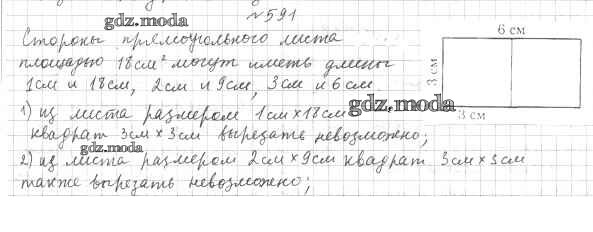 №591
gdz.moda
Стороны прямоугольного листа
площадью 18 см² могут иметь длины
1см и 18см, 2см и 9см, 3см и 6см.
1) из листа размером 1см × 18см
gdz.moda
квадрат 3см × 3см вырезать невозможно;
gdz.moda
2) из листа размером 2см × 9см квадрат 3см × 3см
также вырезать невозможно;
6 см
3 см
3 см